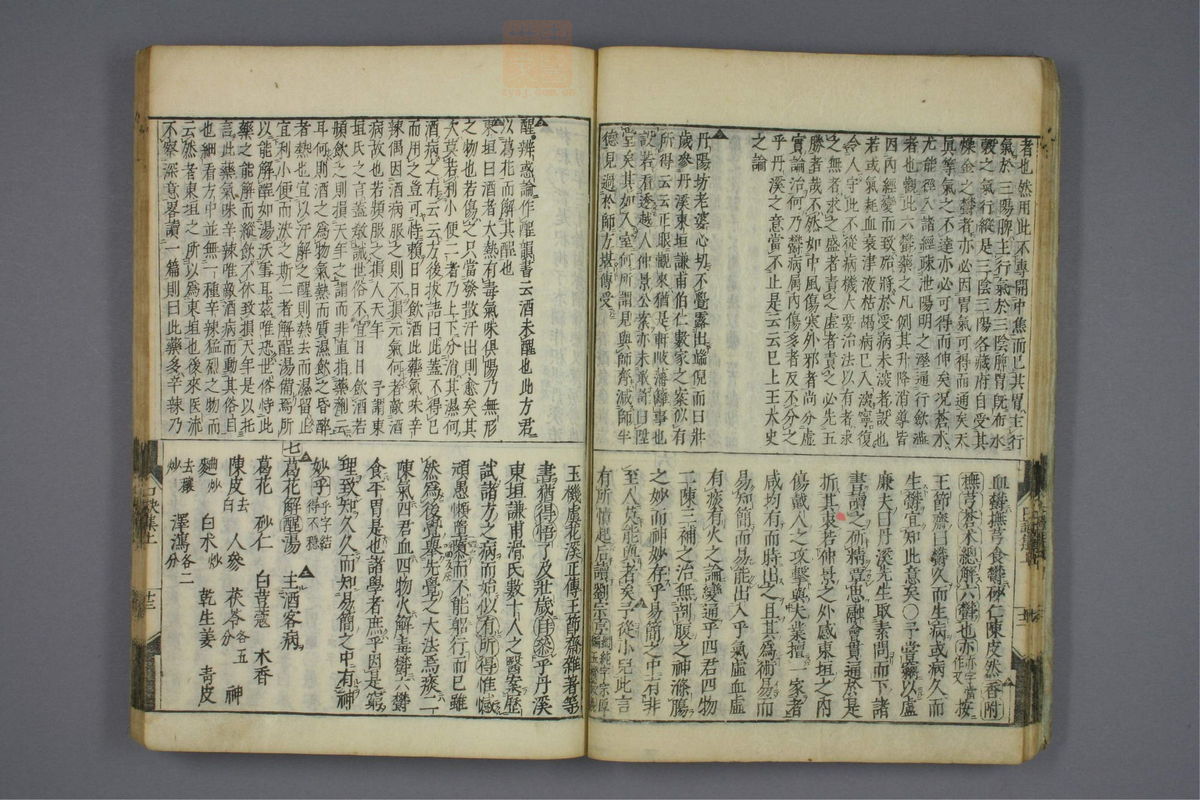 者也然用此不專開中焦而已其胃主行
氣於三陽脾主行氣於三陰脾胃既布水
穀之氣行縱是三陰三陽各藏府自受其
燥金之鬱者亦必因胃氣可得而通矣天
真等氣之不達亦必可得而伸矣況蒼朮
尤能徑入諸經疎泄陽明之濕通行斂濇
者也觀此六鬱藥之凡例其升降消導皆
因內經變而致殆將於受病未深者設也
若或氣耗血衰津液枯竭病已入深寧復
令人守此不從病機大要治法以有者求
之無者求之盛者責之虛者責之必先五
勝者哉不然如中風傷寒外邪者尚分虛
實論治何乃鬱病屬內傷多者反不分之
乎丹溪之意當不止是云云已上王太史
之論
丹陽坊老婆心切不覺露出端倪而曰壯
歲參丹溪東垣謙甫伯仁數家之案似有
所得云云正眼覷來猶是軒岐藩籬事也
設若看透越人仲景公案亦未敢許曰陞
堂矣其如入室何所謂見與師齊減師半
德見過於師方堪傳受
血鬱撫芎食鬱砂仁陳皮然香附
撫芎蒼朮總解六鬱也亦亦字當作又按
王節齋曰鬱久而生病或病久而
生鬱宜知此意矣○予嘗竊以盧
廉夫曰丹溪先生取素問而下諸
書讀之研精覃思融會貫通於是
折其衷若仲景之外感東垣之內
傷戴人之攻擊與夫業擅一家者
咸均有而時出之且其為術易而
易知簡而易能出入乎氣虛血虛
有痰有火之論變通乎四君四物
二陳三補之治無剖腹之神滌腸
之妙而神妙存乎易簡之中有非
至人莫能與者矣予從小兒此言
有所憤起后讀劉宗
醒辨惑論作酲韻書云酒未醒也此方君
以葛花而解其酲也
東垣曰酒者大熱有毒氣味俱陽乃無形
之物也若傷之只當發散汗出則愈矣其
次莫若利小便二者乃上下分消其濕何
酒病之有云云方後披語曰此蓋不得已
而用之豈可恃賴日日飲酒此藥氣味辛
辣偶因酒病服之則不損元氣何者敵酒
病故也若頻服之損人天年　予謂東
垣氏之言蓋救誡世俗不宜日日飲酒若
頻飲之則損天年之謂而非直指藥劑云
耳何則酒之為物氣熱而質濕飲之昏醉
者熱也宜以汗解之醒則熱去而濕留止
宜利小便而泄之斯二者解酲湯備焉所
以能解酲如湯沃雪耳茲唯恐世俗恃此
藥之能解而縱飲不休致損天年是以托
言此藥氣味辛辣唯敵酒病而動其俗目
也細看方中並無一種辛辣猛烈之物而
云然者東垣之所以為東垣也後來醫流
不察深意畧讀一篇則曰此藥多辛辣乃
玉機虛花溪正傳王節齋雜著等
書猶得悟了及壯歲拜參乎丹溪
東垣謙甫滑氏數十人之醫案歷
試諸方之病而始似有所得惟憾
頑愚懶惰而不能躬行而已雖
然為後覺與先覺之大法焉痰二
陳氣四君血四物火解毒鬱六鬱
食平胃是也諸學者庶乎因是窮
理致知久久而知易簡之中有神
妙乎乎字結得不穩
七葛花解酲湯　主酒客病
葛花　砂仁　白荳蔻　木香
陳皮去白　人參　茯苓各五分　神
麯炒　白朮炒　乾生姜　青皮
去穰炒　澤瀉各二分